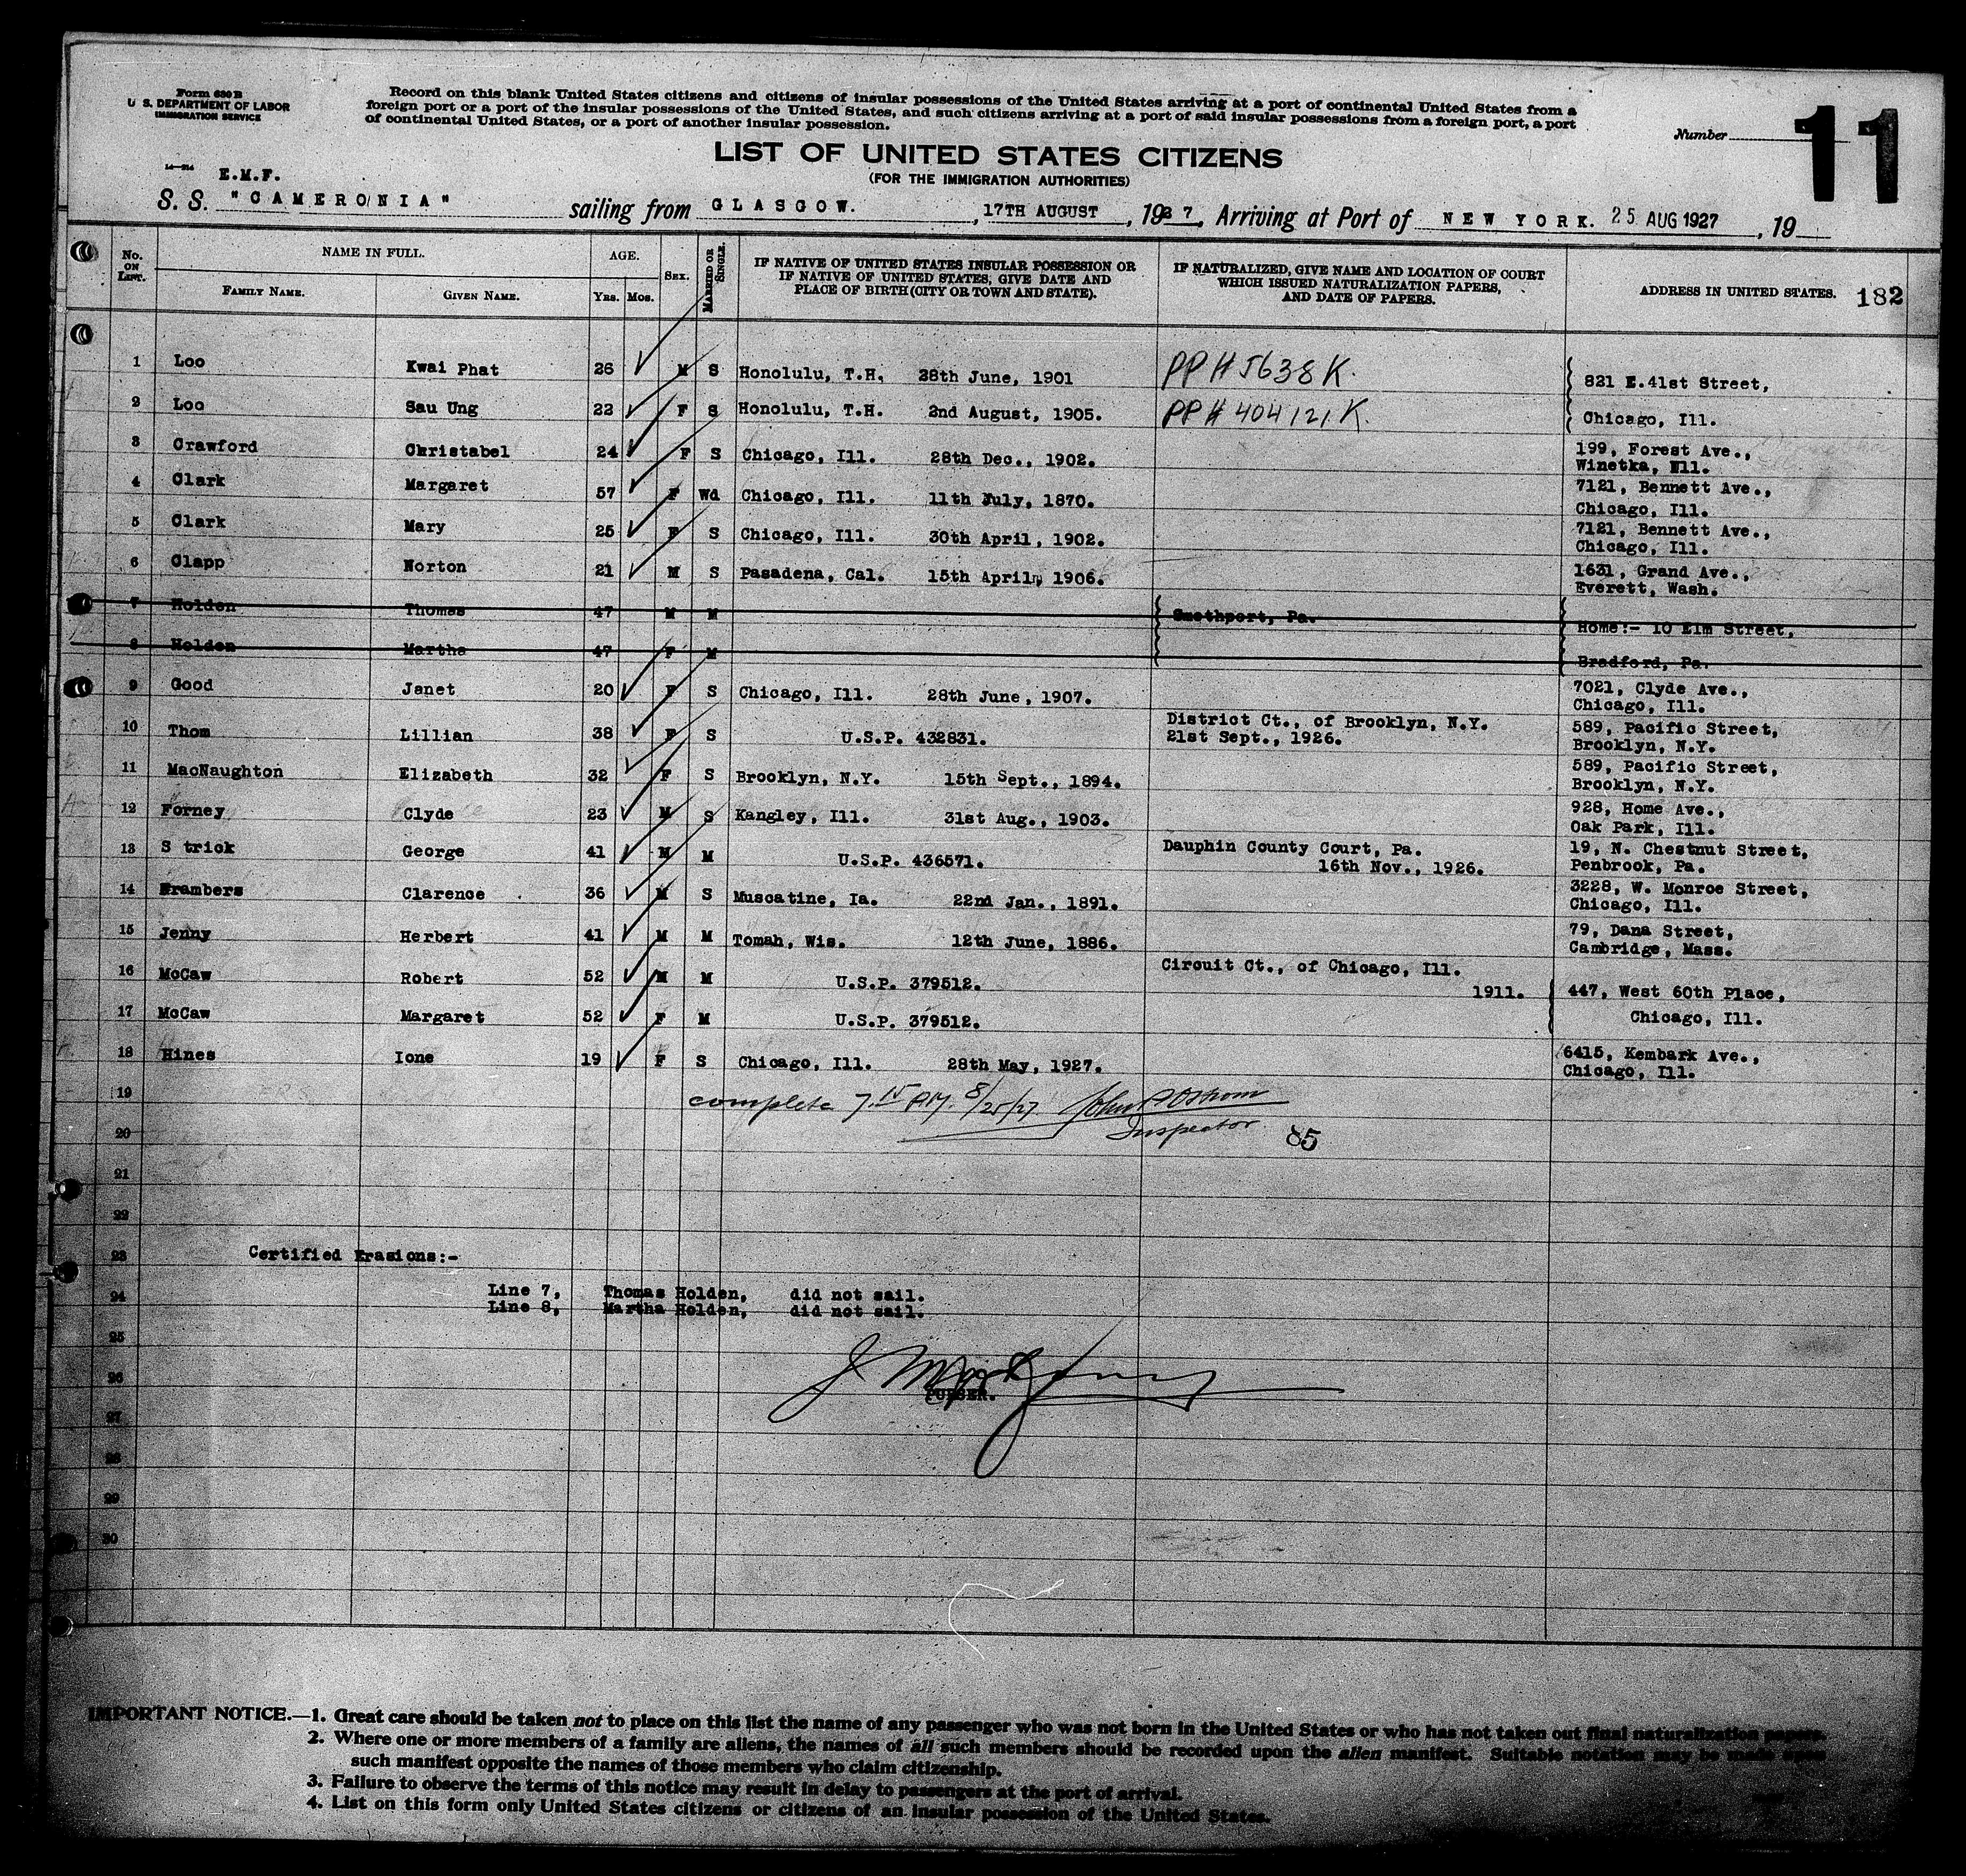 Form 630 B
U. S. DEPARTMENT OF LABOR
IMMIGRATION SERVICE
Record on this blank United States citizens and citizens of insular possessions of the United States arriving at a port of continental United States from a
foreign port or a port of the insular possessions of the United States, and such citizens arriving at a port of said insular possessions from a foreign port, a port
of continental United States, or a port of another insular possession.
Number 11
LIST OF UNITED STATES CITIZENS
(FOR THE IMMIGRATION AUTHORITIES)
E.M.F.
S. S. "CAMERONIA" sailing from GLASGOW. , 17TH AUGUST , 1927, Arriving at Port of NEW YORK. 25 AUG 1927 , 19
No. ON LIST. NAME IN FULL. FAMILY NAME. GIVEN NAME. AGE. YRS. MOS. SEX. MARRIED OR SINGLE. IF NATIVE OF UNITED STATES INSULAR POSSESSION OR IF NATIVE OF UNITED STATES, GIVE DATE AND PLACE OF BIRTH (CITY OR TOWN AND STATE). IF NATURALIZED, GIVE NAME AND LOCATION OF COURT WHICH ISSUED NATURALIZATION PAPERS, AND DATE OF PAPERS. ADDRESS IN UNITED STATES. 182
1 Loo Kwai Phat 26 M S Honolulu, T.H. 28th June, 1901 PP# 5638K. 821 E.41st Street,
2 Loo Sau Ung 22 F S Honolulu, T.H. 2nd August, 1905. PP# 404121K. Chicago, Ill.
3 Crawford Christabel 24 F S Chicago, Ill. 28th Dec., 1902. 199, Forest Ave.,
Winetka, Ill.
4 Clark Margaret 57 F Wd Chicago, Ill. 11th July, 1870. 7121, Bennett Ave.,
Chicago, Ill.
5 Clark Mary 25 F S Chicago, Ill. 30th April, 1902. 7121, Bennett Ave.,
Chicago, Ill.
6 Clapp Norton 21 M S Pasadena, Cal. 15th April, 1906. 1631, Grand Ave.,
Everett, Wash.
7 Holden Thomas 47 M M Smethport, Pa. Home:- 10 Elm Street,
8 Holden Martha 47 F M Bradford, Pa.
9 Good Janet 20 F S Chicago, Ill. 28th June, 1907. 7021, Clyde Ave.,
Chicago, Ill.
10 Thom Lillian 38 F S U.S.P. 432831. District Ct., of Brooklyn, N.Y. 589, Pacific Street,
21st Sept., 1926. Brooklyn, N.Y.
11 MacNaughton Elizabeth 32 F S Brooklyn, N.Y. 15th Sept., 1894. 589, Pacific Street,
Brooklyn, N.Y.
12 Forney Clyde 23 M S Kangley, Ill. 31st Aug., 1903. 928, Home Ave.,
Oak Park, Ill.
13 S trick George 41 M M U.S.P. 436571. Dauphin County Court, Pa. 19, N. Chestnut Street,
16th Nov., 1926. Penbrook, Pa.
14 Brambers Clarence 36 M S Muscatine, Ia. 22nd Jan., 1891. 3228, W. Monroe Street,
Chicago, Ill.
15 Jenny Herbert 41 M M Tomah, Wis. 12th June, 1886. 79, Dana Street,
Cambridge, Mass.
16 McCaw Robert 52 M M U.S.P. 379512. Circuit Ct., of Chicago, Ill.
1911. 447, West 60th Place,
17 McCaw Margaret 52 F M U.S.P. 379512. Chicago, Ill.
18 Hines Ione 19 F S Chicago, Ill. 28th May, 1927. 6415, Kembark Ave.,
Chicago, Ill.
19 complete 7.15 P.M. 8/25/27 John P Ostrom
20 Inspector 85
21
22
23 Certified Erasions:-
24 Line 7, Thomas Holden, did not sail.
Line 8, Martha Holden, did not sail.
25
26 PURSER.
27
28
29
30
IMPORTANT NOTICE.—1. Great care should be taken not to place on this list the name of any passenger who was not born in the United States or who has not taken out final naturalization papers.
2. Where one or more members of a family are aliens, the names of all such members should be recorded upon the alien manifest. Suitable notation may be made upon
such manifest opposite the names of those members who claim citizenship.
3. Failure to observe the terms of this notice may result in delay to passengers at the port of arrival.
4. List on this form only United States citizens or citizens of an insular possession of the United States.